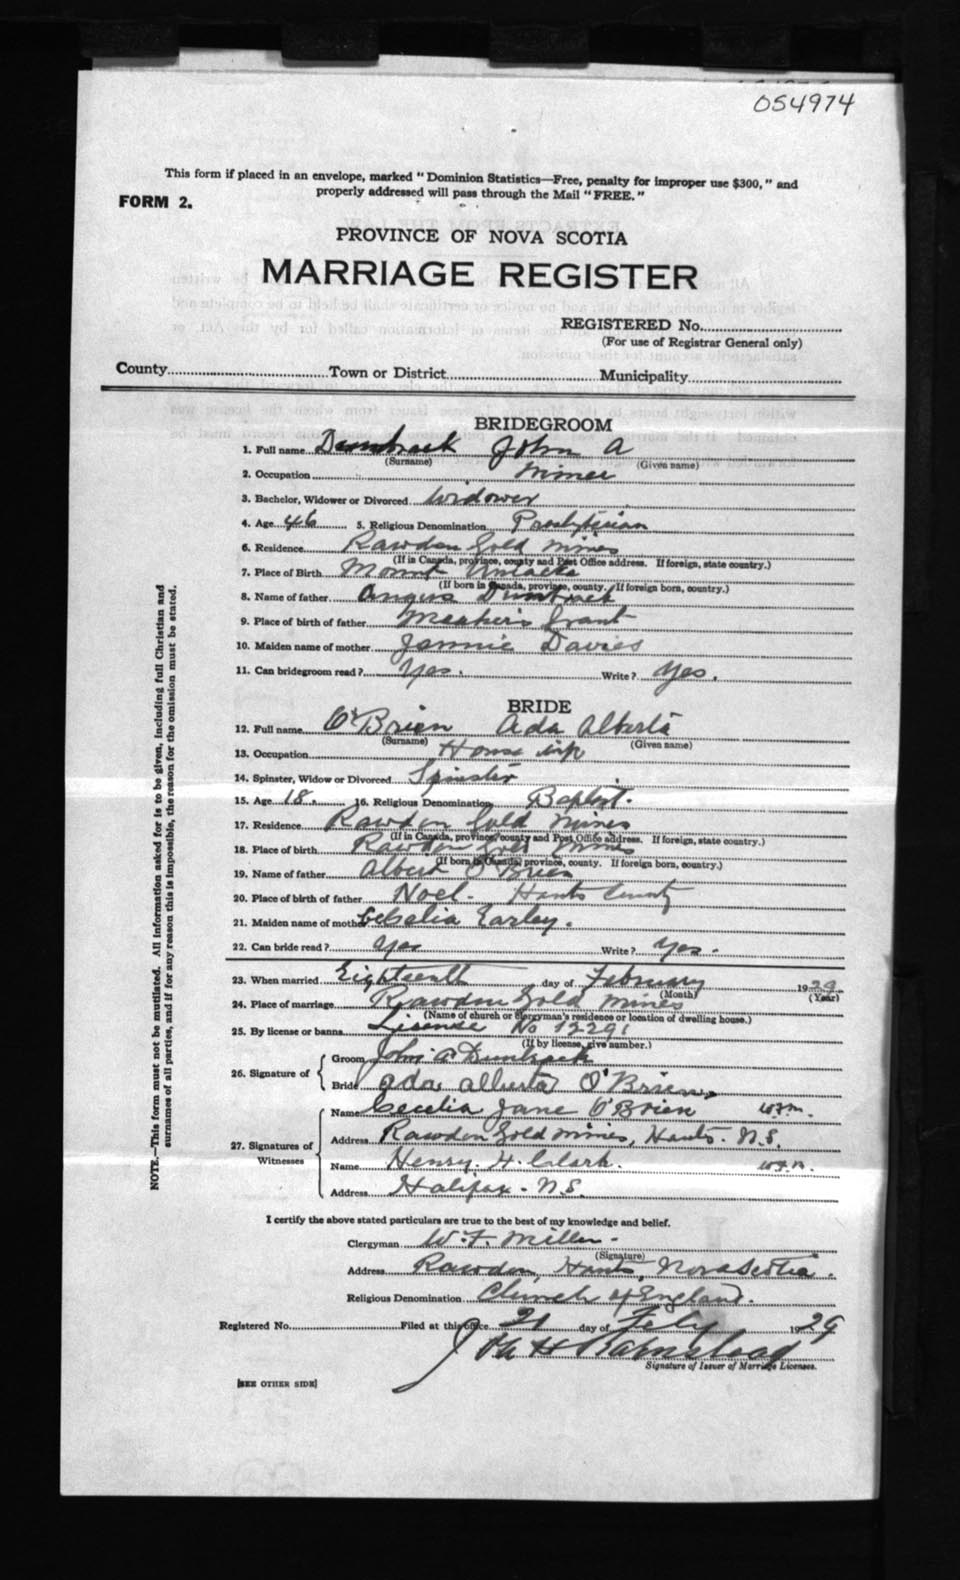 054974
This form if placed in an envelope, marked "Dominion Statistics—Free, penalty for improper use $300," and
properly addressed will pass through the Mail "FREE."
FORM 2.
PROVINCE OF NOVA SCOTIA
MARRIAGE REGISTER
REGISTERED No.
(For use of Registrar General only)
County Town or District Municipality
BRIDEGROOM
1. Full name Dumbrack John A
(Surname) (Given name)
2. Occupation Miner
3. Bachelor, Widower or Divorced Widower
4. Age 46 5. Religious Denomination Presbyterian
6. Residence Rawdon Gold Mines
(If in Canada, province, county and Post Office address. If foreign, state country.)
7. Place of Birth Mount Uniacke
(If born in Canada, province, county. If foreign born, country.)
8. Name of father Angus Dumbrack
9. Place of birth of father Meaher's Grant
10. Maiden name of mother Jennie Davies
11. Can bridegroom read? Yes. Write? Yes.
BRIDE
12. Full name O'Brien Ada Alberta
(Surname) (Given name)
13. Occupation House wife
14. Spinster, Widow or Divorced Spinster
15. Age 18. 16. Religious Denomination Baptist.
17. Residence Rawdon Gold Mines
(If in Canada, province, county and Post Office address. If foreign, state country.)
18. Place of birth Rawdon Gold Mines
(If born in Canada, province, county. If foreign born, country.)
19. Name of father Albert O'Brien
20. Place of birth of father Noel - Hants County
21. Maiden name of mother Cecelia Earley.
22. Can bride read? Yes Write? Yes.
23. When married Eighteenth day of February 1929
(Month) (Year)
24. Place of marriage Rawdon Gold Mines
(Name of church or clergyman's residence or location of dwelling house.)
25. By license or banns Lisense No 12291
(If by license, give number.)
26. Signature of
Groom John A Dumbrack
Bride Ada Alberta O'Brien
27. Signatures of Witnesses
Name Cecelia Jane O'Brien W.F.M.
Address Rawdon Gold Mines, Hants. N.S.
Name Henry H. Clark. W.F.M.
Address Halifax - N.S.
I certify the above stated particulars are true to the best of my knowledge and belief.
Clergyman W. F. Miller
(Signature)
Address Rawdon, Hants, Nova Scotia.
Religious Denomination Church of England.
Registered No. Filed at this office 21 day of Feby 1929
H
Signature of Issuer of Marriage Licenses.
[SEE OTHER SIDE]
NOTE.—This form must not be mutilated. All information asked for is to be given, including full Christian and
surnames of all parties, and if for any reason this is impossible, the reason for the omission must be stated.